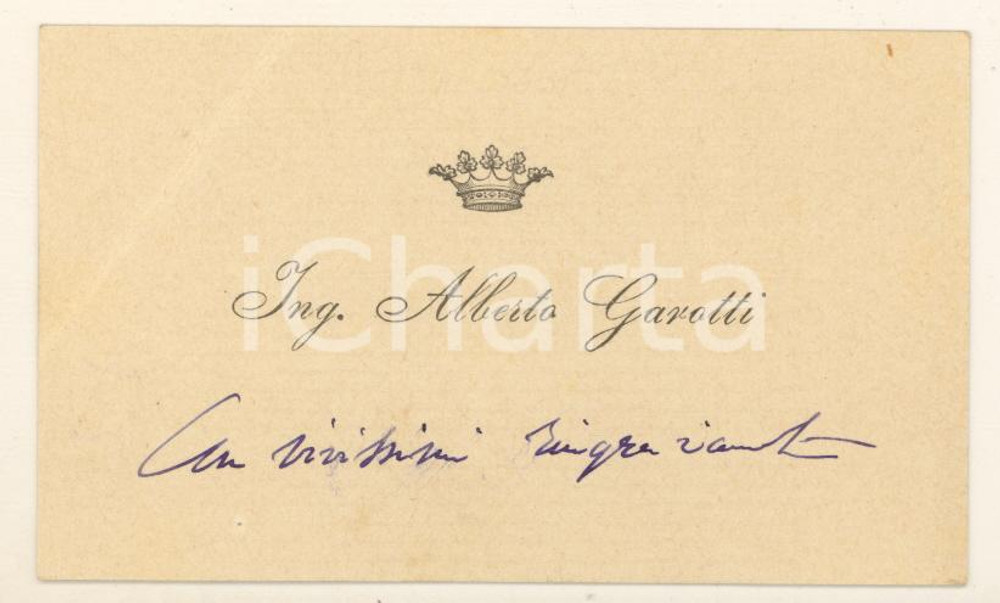 iCharta
Ing. Alberto Garotti
Con vivissimi ringraziamenti